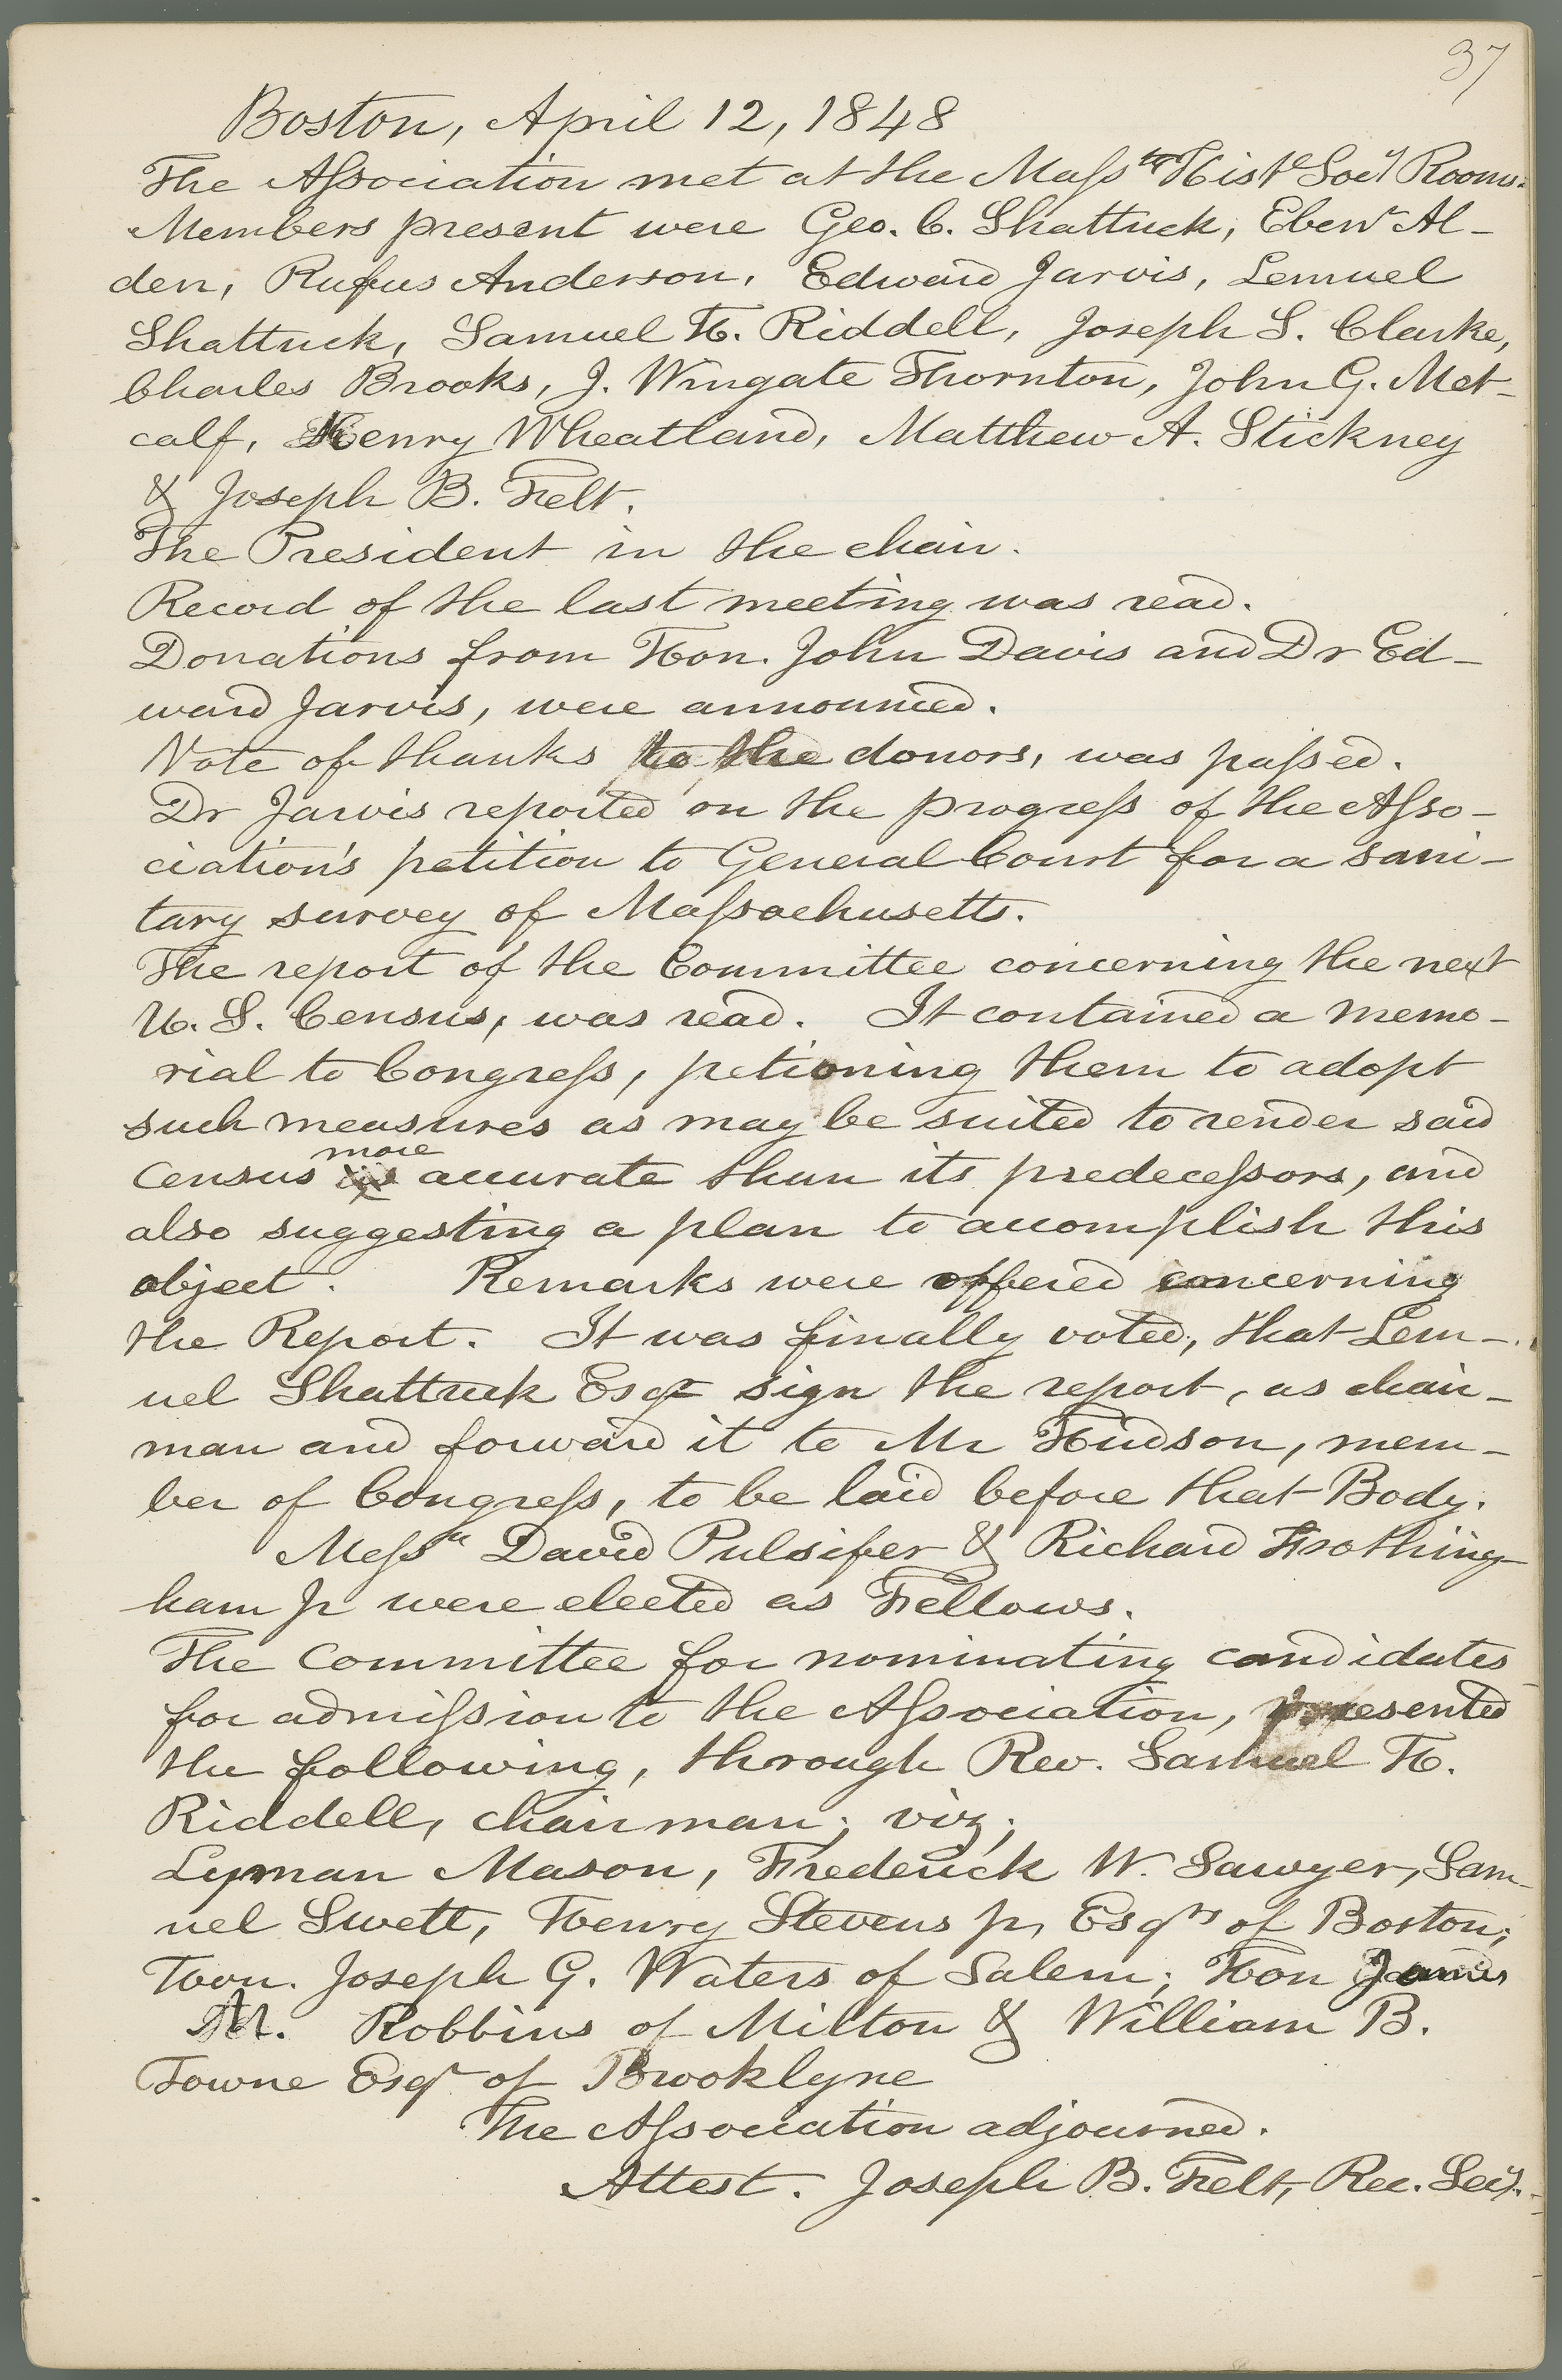 37
Boston, April 12, 1848
The Association met at the Masstts Histl Socy Rooms.
Members present were Geo. C. Shattuck, Ebenr Al-
den, Rufus Anderson, Edward Jarvis, Lemuel
Shattuck, Samuel H. Riddell, Joseph S. Clarke,
Charles Brooks, J. Wingate Thornton, John G. Met-
calf, Henry Wheatland, Matthew A. Stickney
& Joseph B. Felt.
The President in the chair.
Record of the last meeting was read.
Donations from Hon. John Davis and Dr Ed-
ward Jarvis, were announced.
Vote of thanks to the donors, was passed.
Dr Jarvis reported on the progress of the Asso-
ciation's petition to General Court for a sani-
tary survey of Massachusetts.
The report of the Committee concerning the next
U. S. Census, was read. It contained a memo-
rial to Congress, petioning them to adopt
such measures as may be suited to render said
more
census accurate than its predecessors, and
also suggesting a plan to accomplish this
object. Remarks were offered concerning
the Report. It was finally voted, that Lem-
uel Shattuck Esqr sign the report, as chair-
man and forward it to Mr Hudson, mem-
ber of Congress, to be laid before that Body.
Messrs David Pulsifer & Richard Frothing-
ham Jr were elected as Fellows.
The Committee for nominating candidates
for admission to the Association, presented
the following, through Rev. Samuel H.
Riddell, chairman; viz;
Lyman Mason, Frederick W. Sawyer, Sam-
uel Swett, Henry Stevens jr, Esqrs of Boston;
Hon. Joseph G. Waters of Salem; Hon James
M. Robbins of Milton & William B.
Towne Esqr of Brooklyne
The Association adjourned.
Attest. Joseph B. Felt, Rec. Secy.